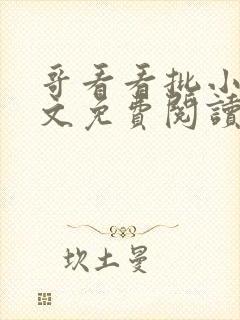 哥看看批小
文免費閱讀
坎土曼